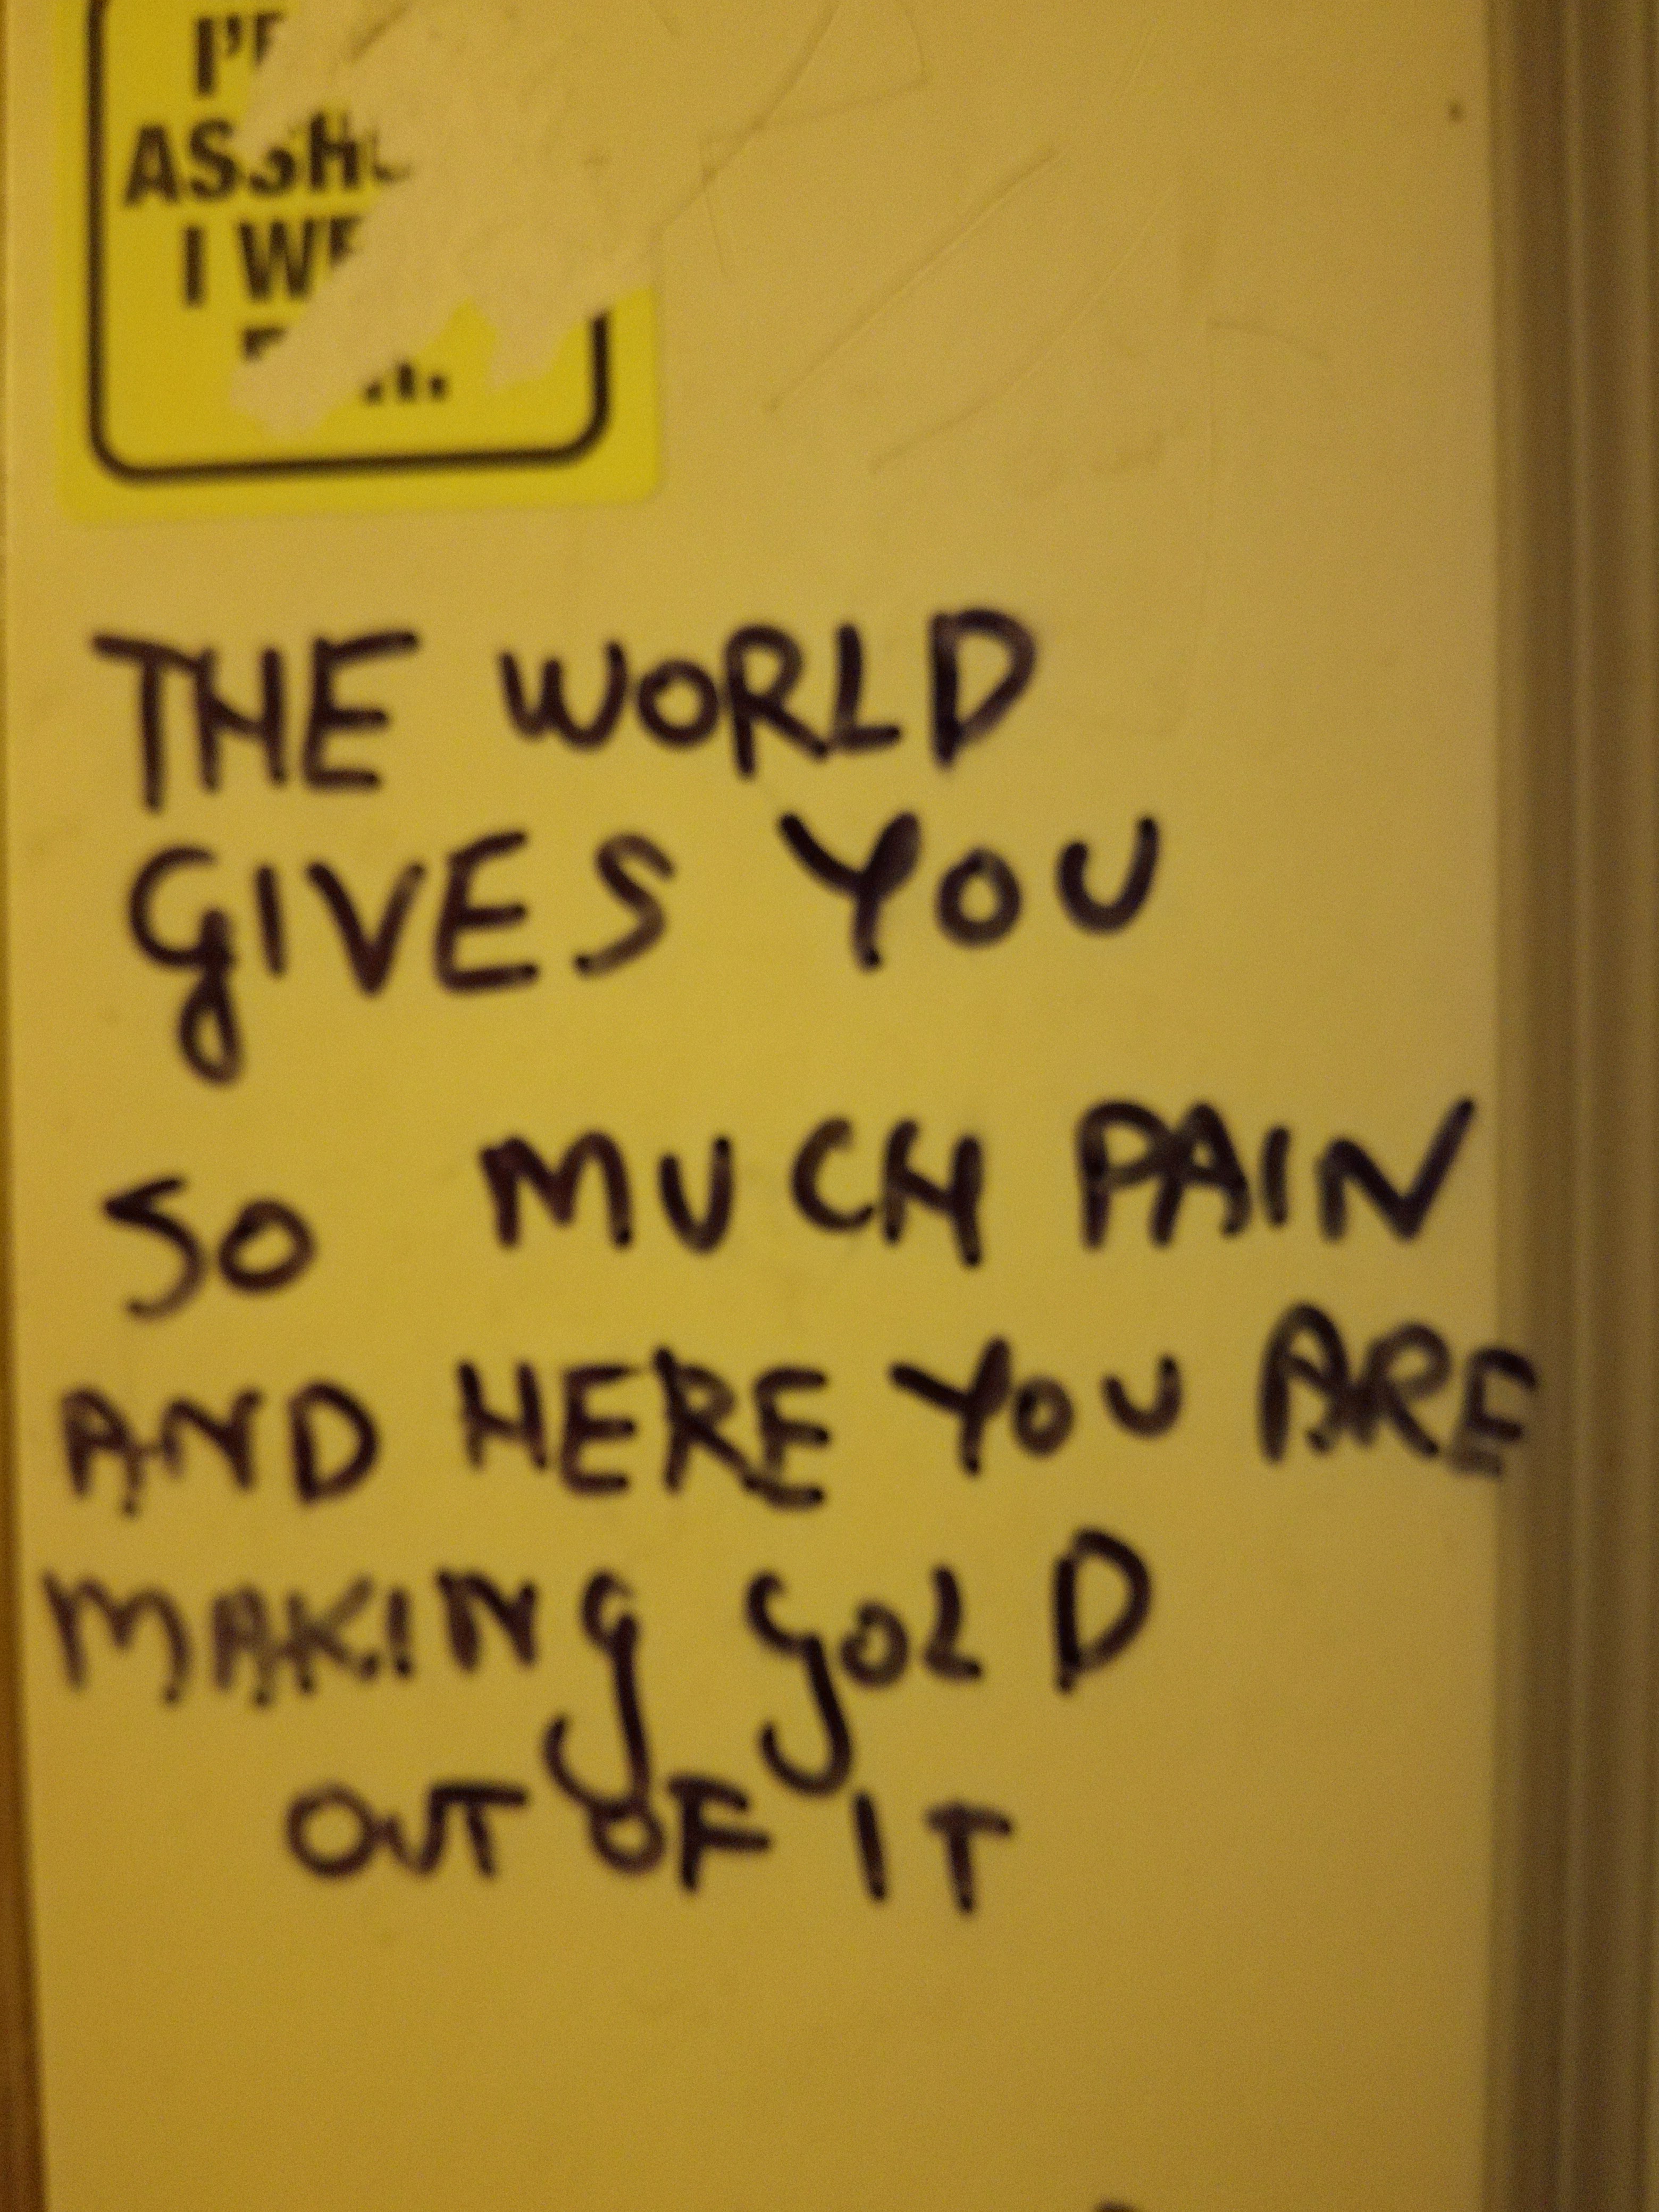 I'
ASSHO
I WE
THE WORLD
GIVES YOU
SO MUCH PAIN
AND HERE YOU ARE
MAKING GOLD
OUT OF IT